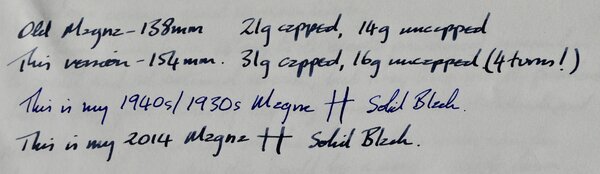 Old Magna - 138mm 21g capped, 14g uncapped
This version - 154mm. 31g capped, 16g uncapped (4 turns!)
This is my 1940s/1930s Magna Solid Black.
This is my 2014 Magna Solid Black.